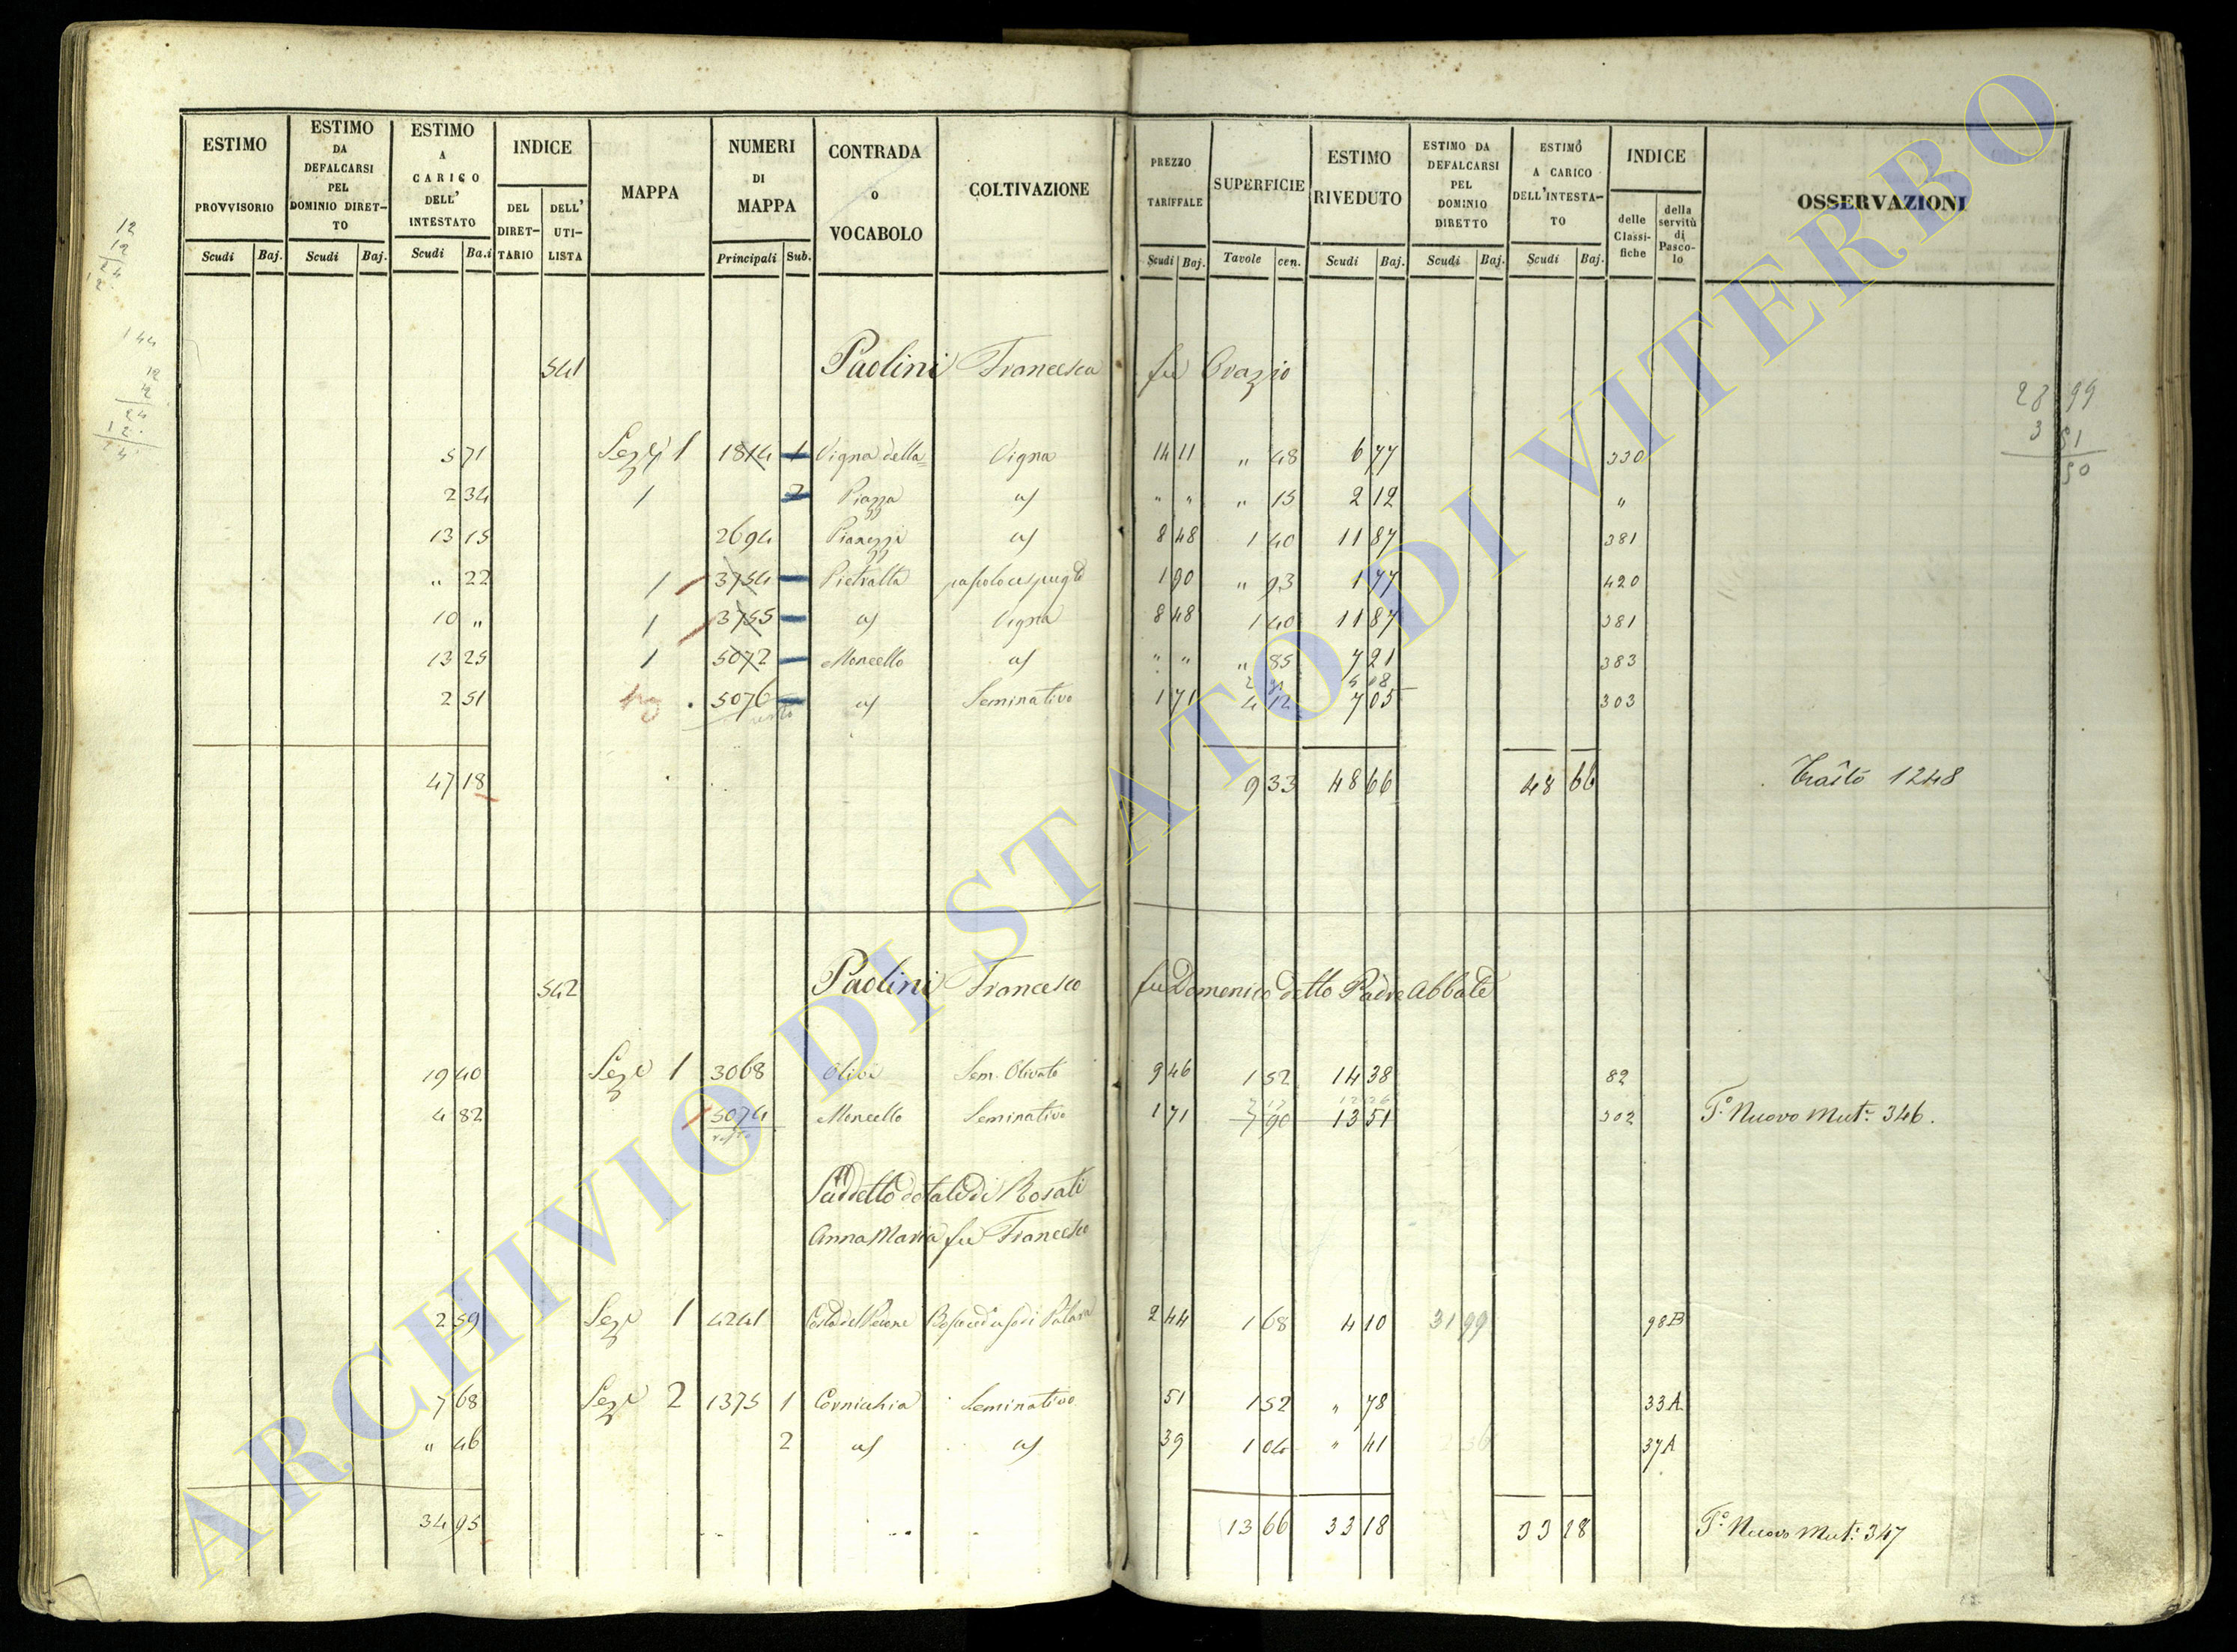 ESTIMO PROVVISORIO Scudi Baj.
ESTIMO DA DEFALCARSI PEL DOMINIO DIRETTO Scudi Baj.
ESTIMO A CARICO DELL' INTESTATO Scudi Ba.i
INDICE DEL DIRETTARIO DELL' UTILISTA
MAPPA
NUMERI DI MAPPA Principali Sub.
CONTRADA o VOCABOLO
COLTIVAZIONE
PREZZO TARIFFALE Scudi Baj.
SUPERFICIE Tavole cen.
ESTIMO RIVEDUTO Scudi Baj.
ESTIMO DA DEFALCARSI PEL DOMINIO DIRETTO Scudi Baj.
ESTIMO A CARICO DELL'INTESTATO Scudi Baj.
INDICE delle Classifiche della servitù di Pascolo
OSSERVAZIONI
541 Paolini Francesca fu Orazio
5 71 Sez.e 1 1814 1 Vigna della Vigna 14 11 " 48 6 77 330
2 34 1 2 Piazza id " " " 15 2 12 "
13 15 2694 Pianezze id 8 48 1 40 11 87 381
" 22 1 3754 Pietralta pascolo cespugto 1 90 " 93 1 77 420
10 " 1 3755 id Vigna 8 48 1 40 11 87 381
13 25 1 5072 Moncello id " " " 85 7 21 383
2 51 5076 resto id Seminativo 1 71 4 12 7 05 303
47 18 9 33 48 66 48 66 1248
28 99
3 51
50
542 Paolini Francesco fu Domenico detto Padre Abbate
19 40 Sez.e 1 3068 Olivi Sem. Olivato 9 46 1 52 14 38 82
4 82 5074 resto Moncello Seminativo 1 71 7 90 13 51 302 T.o Nuovo Mut.e 346.
Suddetto dotale di Rosati
Anna Maria fu Francesco
2 59 Sez.e 1 4241 Costa del Pecone 2 44 1 68 4 10 31 99 98B
7 68 Sez.e 2 1375 1 Cornichia Seminativo 51 1 52 " 78 33A
" 46 2 id id 39 1 04 " 41 37A
34 95 13 66 33 18 33 18 T.o Nuovo Mut.e 347
12
12
24
144
12
12
24
12
ARCHIVIO DI STATO DI VITERBO